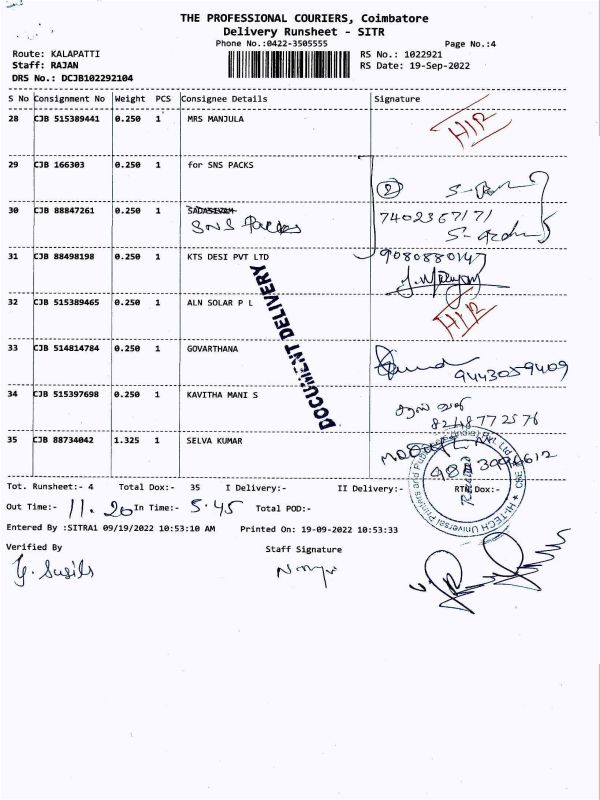 THE PROFESSIONAL COURIERS, Coimbatore
Delivery Runsheet - SITR
Phone No.:0422-3505555
Page No.:4
Route: KALAPATTI
RS No.: 1022921
Staff: RAJAN
RS Date: 19-Sep-2022
DRS No.: DCJB102292104
S No Consignment No Weight PCS Consignee Details Signature
28 CJB 515389441 0.250 1 MRS MANJULA
29 CJB 166303 0.250 1 for SNS PACKS
2
30 CJB 88847261 0.250 1 SADASIVAM
SNS Packs
31 CJB 88498198 0.250 1 KTS DESI PVT LTD 9080880147
32 CJB 515389465 0.250 1 ALN SOLAR P L
33 CJB 514814784 0.250 1 GOVARTHANA
9443059409
34 CJB 515397698 0.250 1 KAVITHA MANI S
8248772576
35 CJB 88734042 1.325 1 SELVA KUMAR
DOCUMENT DELIVERY
HI-TECH Universal Printers and Publishers (India) Pvt. Ltd. CBE
Tot. Runsheet:- 4 Total Dox:- 35 I Delivery:- II Delivery:- RTN Dox:-
Out Time:- 11.20 In Time:- 5.45 Total POD:-
Entered By :SITRA1 09/19/2022 10:53:10 AM Printed On: 19-09-2022 10:53:33
Verified By Staff Signature